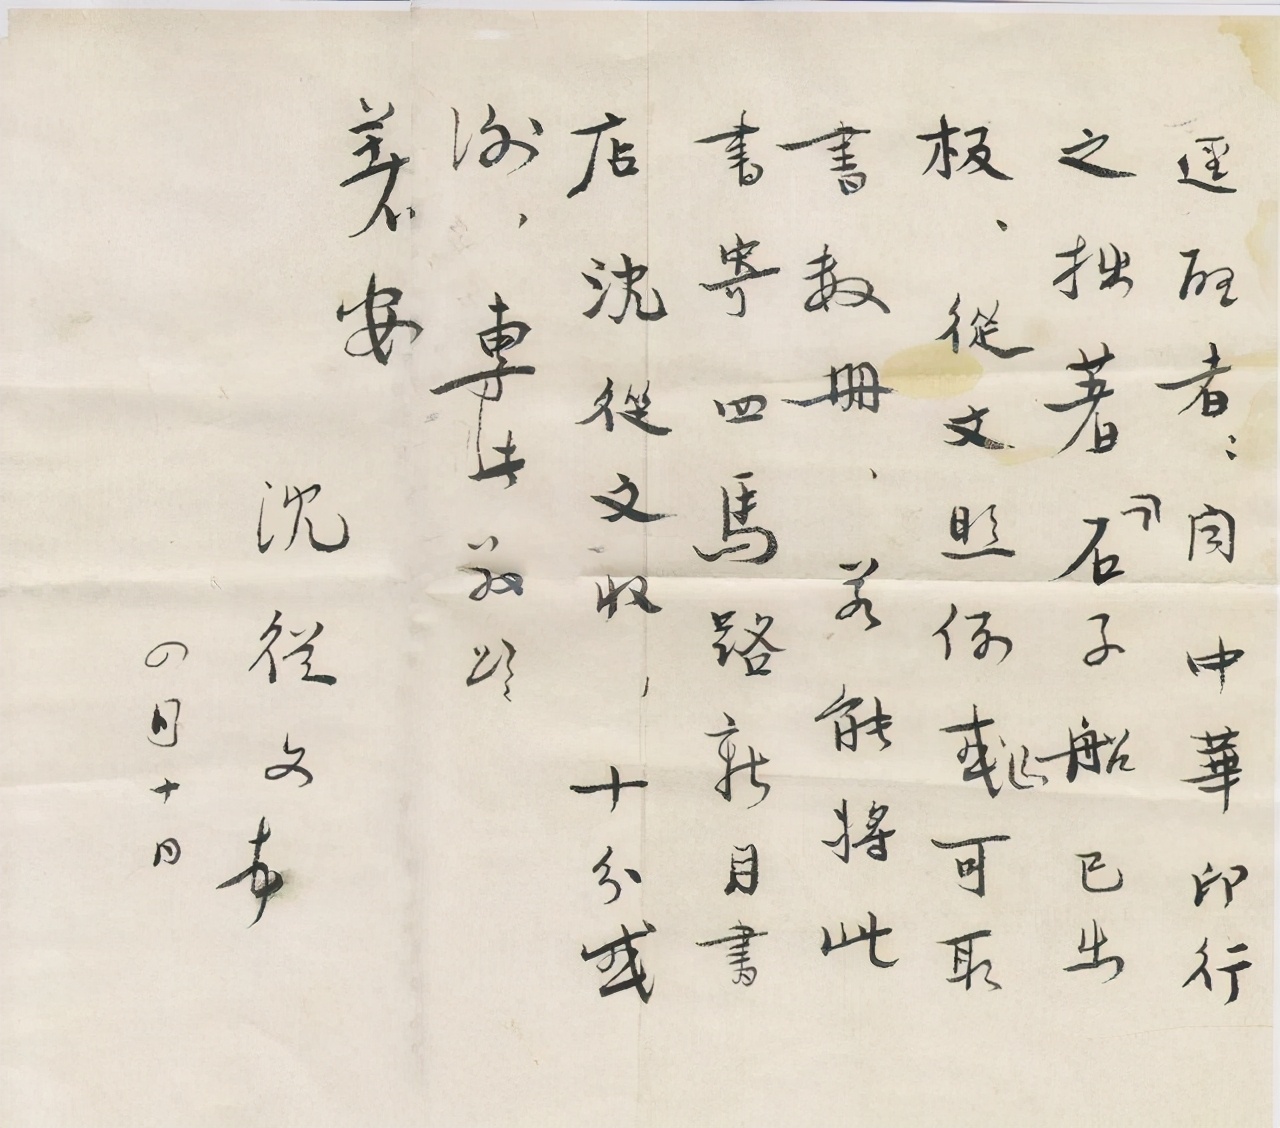 逕啟者：聞中華印行
之拙著『石子船』已出
板、從文照例或可取
書數册、若能將此
書寄四馬路新月書
店沈從文收，十分感
謝，專此敬頌
著安
沈從文 上
四月十日